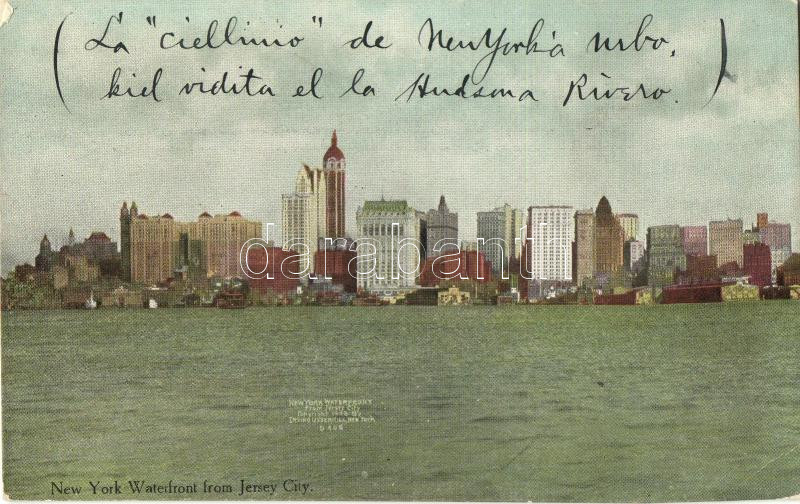 (La "ciellinio" de NewYork'a urbo,
kiel vidita el la Hudsona Rivero.)
darabanth
NEW YORK WATERFRONT
From Jersey City
New York Waterfront from Jersey City.